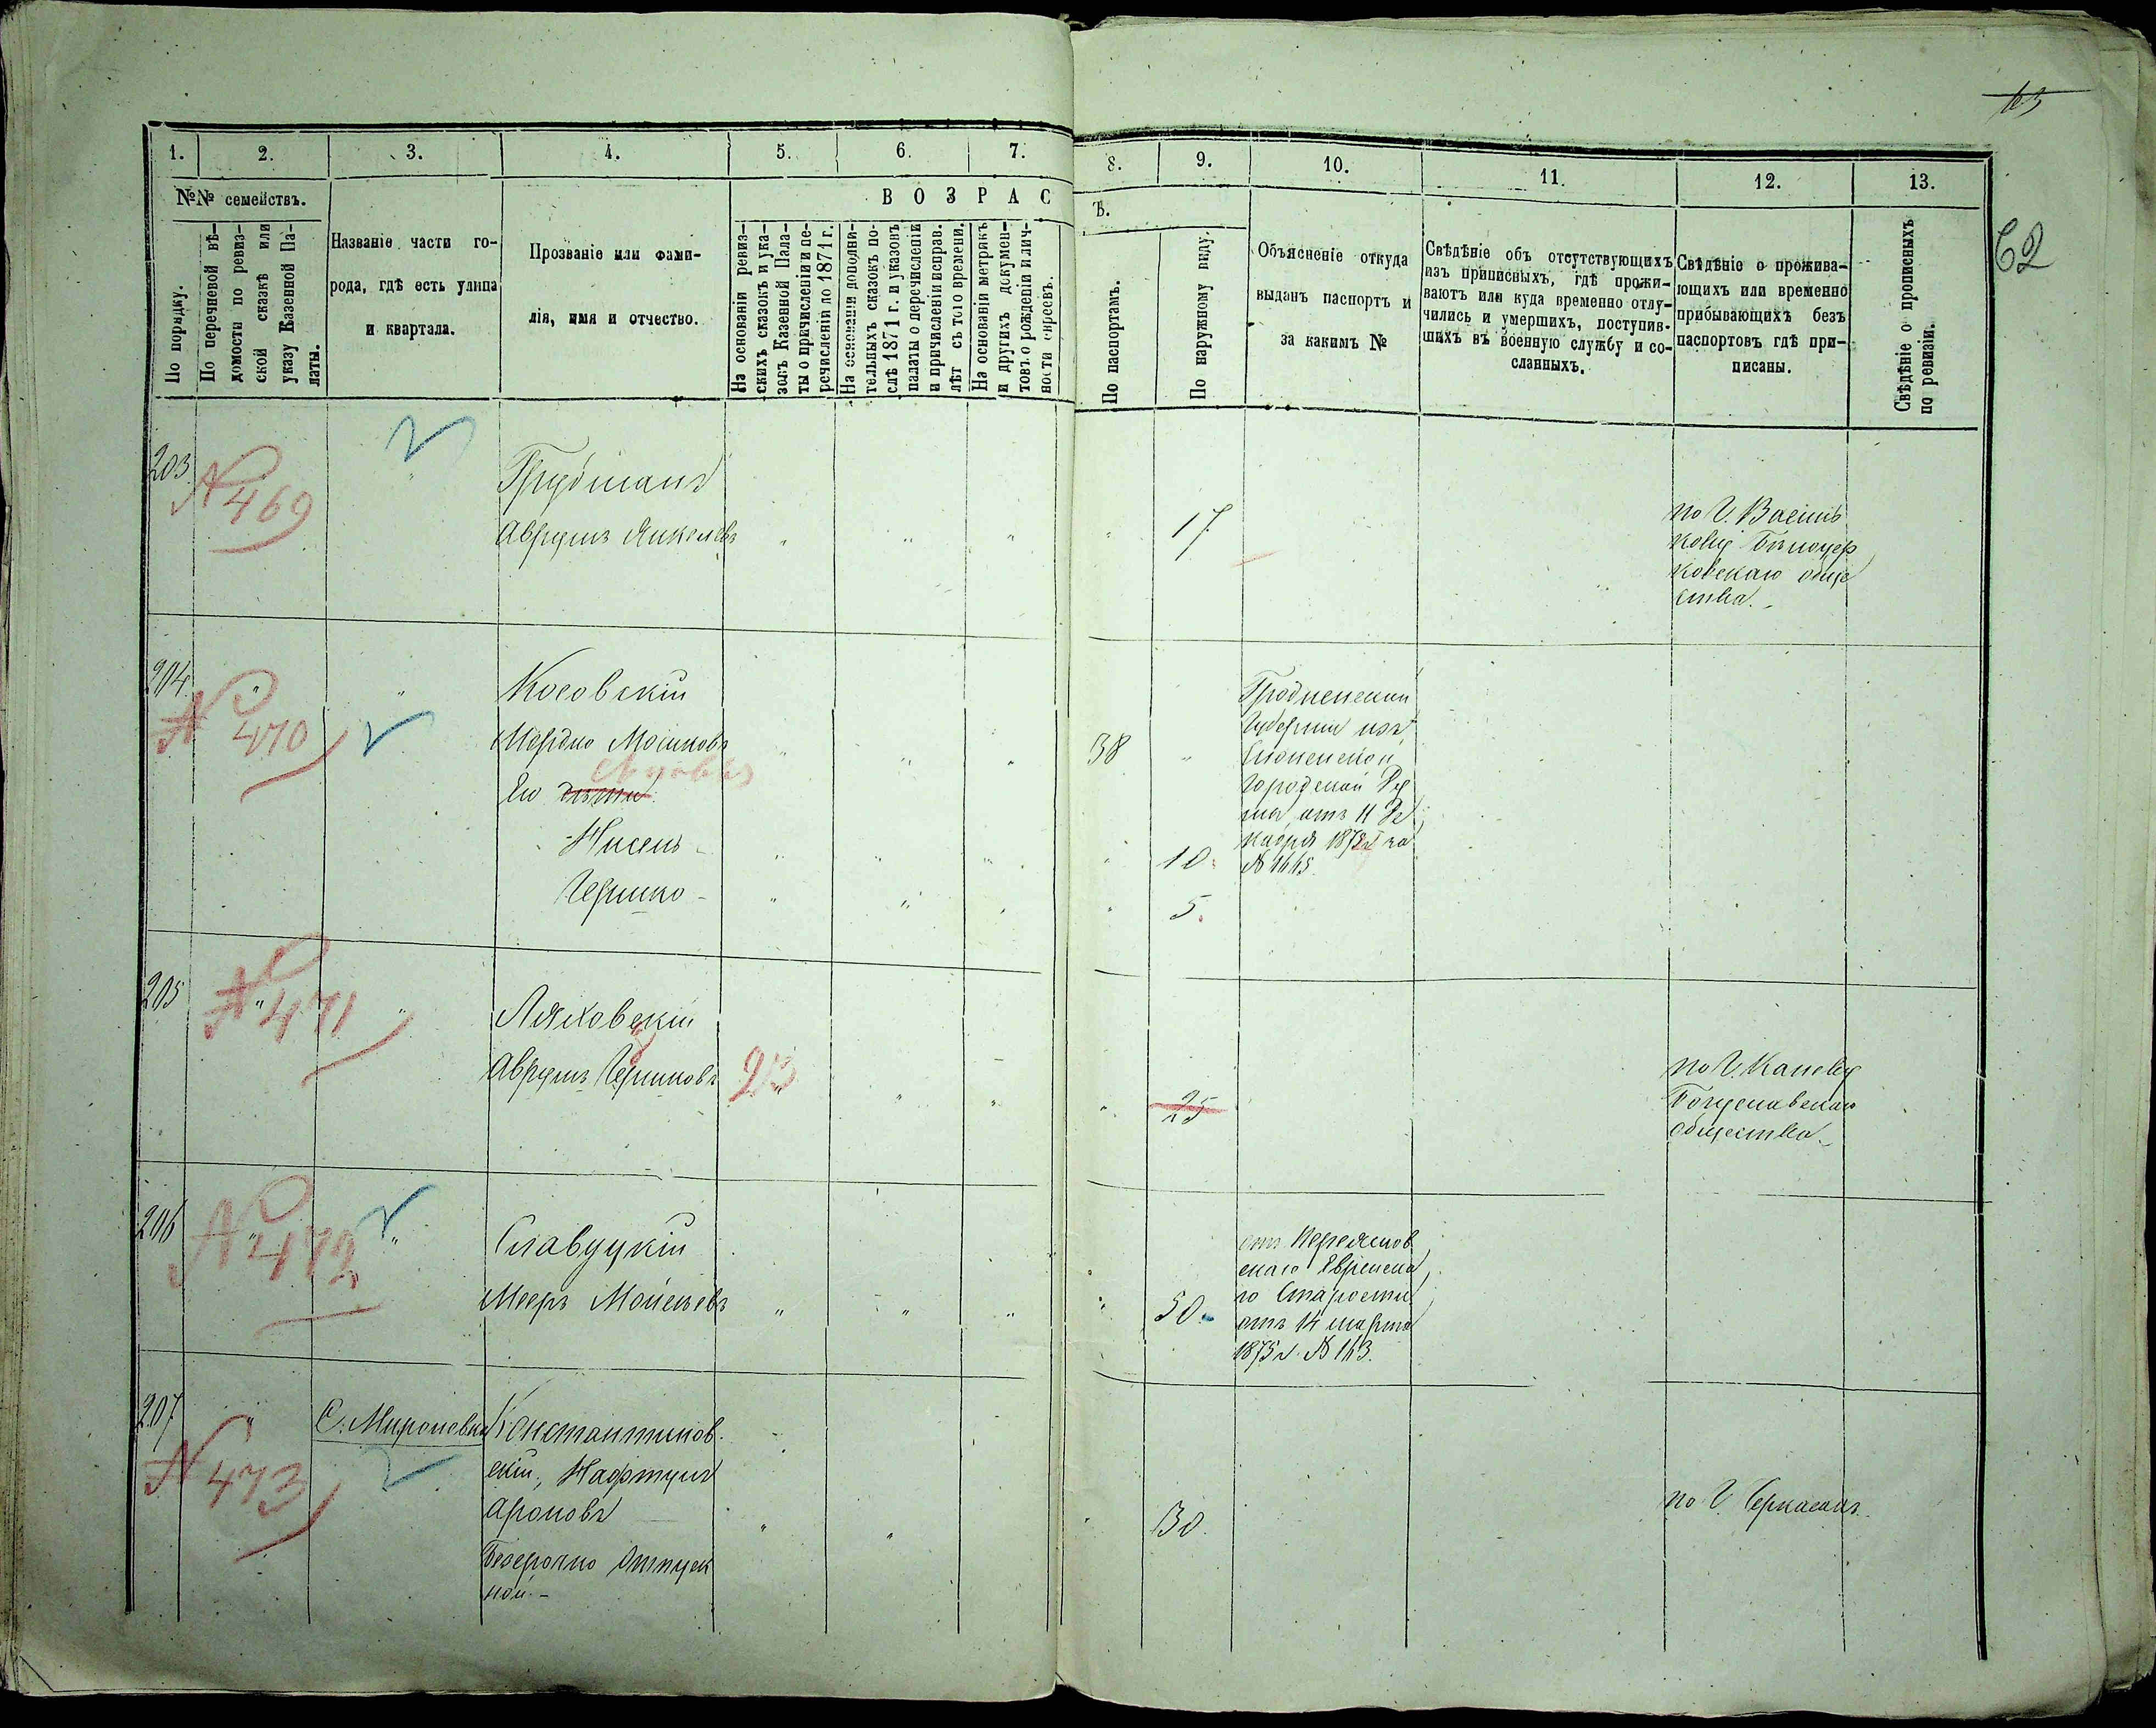 63
62
1. 2. 3. 4. 5. 6. 7. 8. 9. 10. 11. 12. 13.
№№ семействъ.
По порядку.
По перечневой вѣ-
домости по ревиз-
ской сказкѣ или
указу Казенной Па-
латы.
Названіе части го-
рода, гдѣ есть улица
и квартала.
Прозваніе или фами-
лія, имя и отчество.
ВОЗРАС
Ъ.
На основаніи ревиз-
скихъ сказокъ и ука-
зовъ Казенной Пала-
ты о причисленіи и пе-
речисленіи до 1871 г.
На основаніи дополни-
тельныхъ сказокъ по-
слѣ 1871 г. и указовъ
палаты о перечисленіи
и причисленіи исправ.
лѣт съ того времени.
На основаніи метрикъ
и другихъ докумен-
товъ о рожденіи и лич-
ности евреевъ.
По паспортамъ.
По наружному виду.
Объясненіе откуда
выданъ паспортъ и
за какимъ №
Свѣдѣніе объ отсутствующихъ
изъ приписныхъ, гдѣ прожи-
ваютъ или куда временно отлу-
чились и умершихъ, поступив-
шихъ въ военную службу и со-
сланныхъ.
Свѣдѣніе о прожива-
ющихъ или временно
прибывающихъ безъ
паспортовъ гдѣ при-
писаны.
Свѣдѣніе о прописныхъ
по ревизіи.
203.
№ 469
Грубманъ
Аврумъ Янкелевъ
17
по Г. Василь
кову Бѣлоцер
ковскаго обще
ства.
204.
№ 470
Косовскій
Мордко Мошковъ
сыновья
Его дѣти
Нисень
Гершко
38
10.
5.
Гродненской
Губерніи изъ
Слонимской
Городской Ду
мы, отъ 11 Де
кабря 187 г за
№ 1665.
205
№ 471
Ляховскій
Аврумъ Гершковъ
23
25
по Г. Каневу
Богуславскаго
общества.
206
№ 472
Славуцкій
Мееръ Мойсеевъ
50.
отъ Переяслов
скаго Еврейска
го Старосты
отъ 14 марта
1875 г. № 163.
207
№ 473
С. Мироновка
Константинов
скій, Нафтулъ
Ароновъ
Безсрочно Отпуск
ной.
30.
по Г. Черкасамъ.